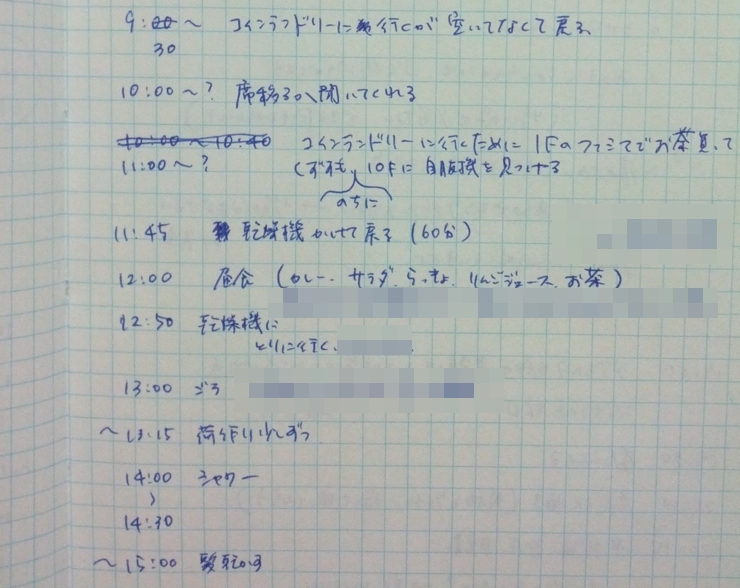 9:00〜 コインランドリーに行くが空いてなくて戻る
30
10:00〜? 席移るか聞いてくれる
10:00〜10:40 コインランドリーに行くために1Fのファミマでお茶買って
11:00〜? くずすも、10Fに自販機を見つける
のちに
11:45 乾燥機かけて戻る(60分)
12:00 昼食(カレー、サラダ、らっきょ、りんごジュース、お茶)
12:50 乾燥機に
とりに行く、
13:00 ごろ
〜13:15 荷作り少しずつ
14:00 シャワー
〜
14:30
〜15:00 髪乾かす